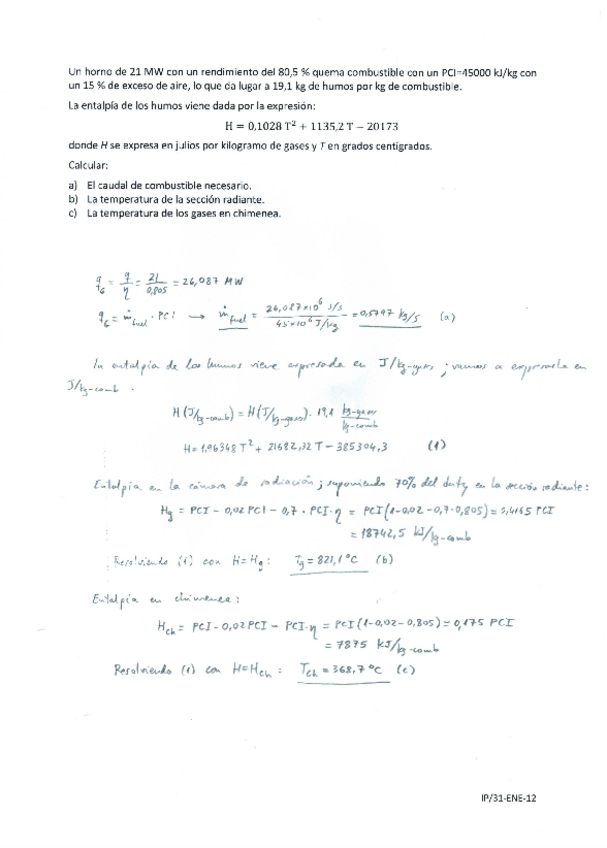 Un horno de 21 MW con un rendimiento del 80,5 % quema combustible con un PCI=45000 kJ/kg con
un 15 % de exceso de aire, lo que da lugar a 19,1 kg de humos por kg de combustible.
La entalpía de los humos viene dada por la expresión:
H = 0,1028 T² + 1135,2 T − 20173
donde H se expresa en julios por kilogramo de gases y T en grados centígrados.
Calcular:
a) El caudal de combustible necesario.
b) La temperatura de la sección radiante.
c) La temperatura de los gases en chimenea.
q_G = q/η = 21/0,805 = 26,087 MW
q_G = ṁ_fuel · PCI → ṁ_fuel = 26,087×10⁶ J/s / 45×10⁶ J/kg = 0,5797 kg/s (a)
La entalpía de los humos viene expresada en J/kg-gases ; vamos a expresarla en
J/kg-comb .
H (J/kg-comb) = H (J/kg-gases) · 19,1 kg-gases/kg-comb
H = 1,96348 T² + 21682,32 T − 385304,3 (1)
Entalpía en la cámara de radiación ; suponiendo 70% del duty en la sección radiante:
Hg = PCI − 0,02 PCI − 0,7 · PCI·η = PCI (1−0,02−0,7·0,805) = 0,4165 PCI
= 18742,5 kJ/kg-comb
Resolviendo (1) con H=Hg : Tg = 821,1 °C (b)
Entalpía en chimenea :
H_ch = PCI − 0,02 PCI − PCI·η = PCI (1−0,02−0,805) = 0,175 PCI
= 7875 kJ/kg-comb
Resolviendo (1) con H=H_ch : T_ch = 368,7 °C (c)
IP/31-ENE-12